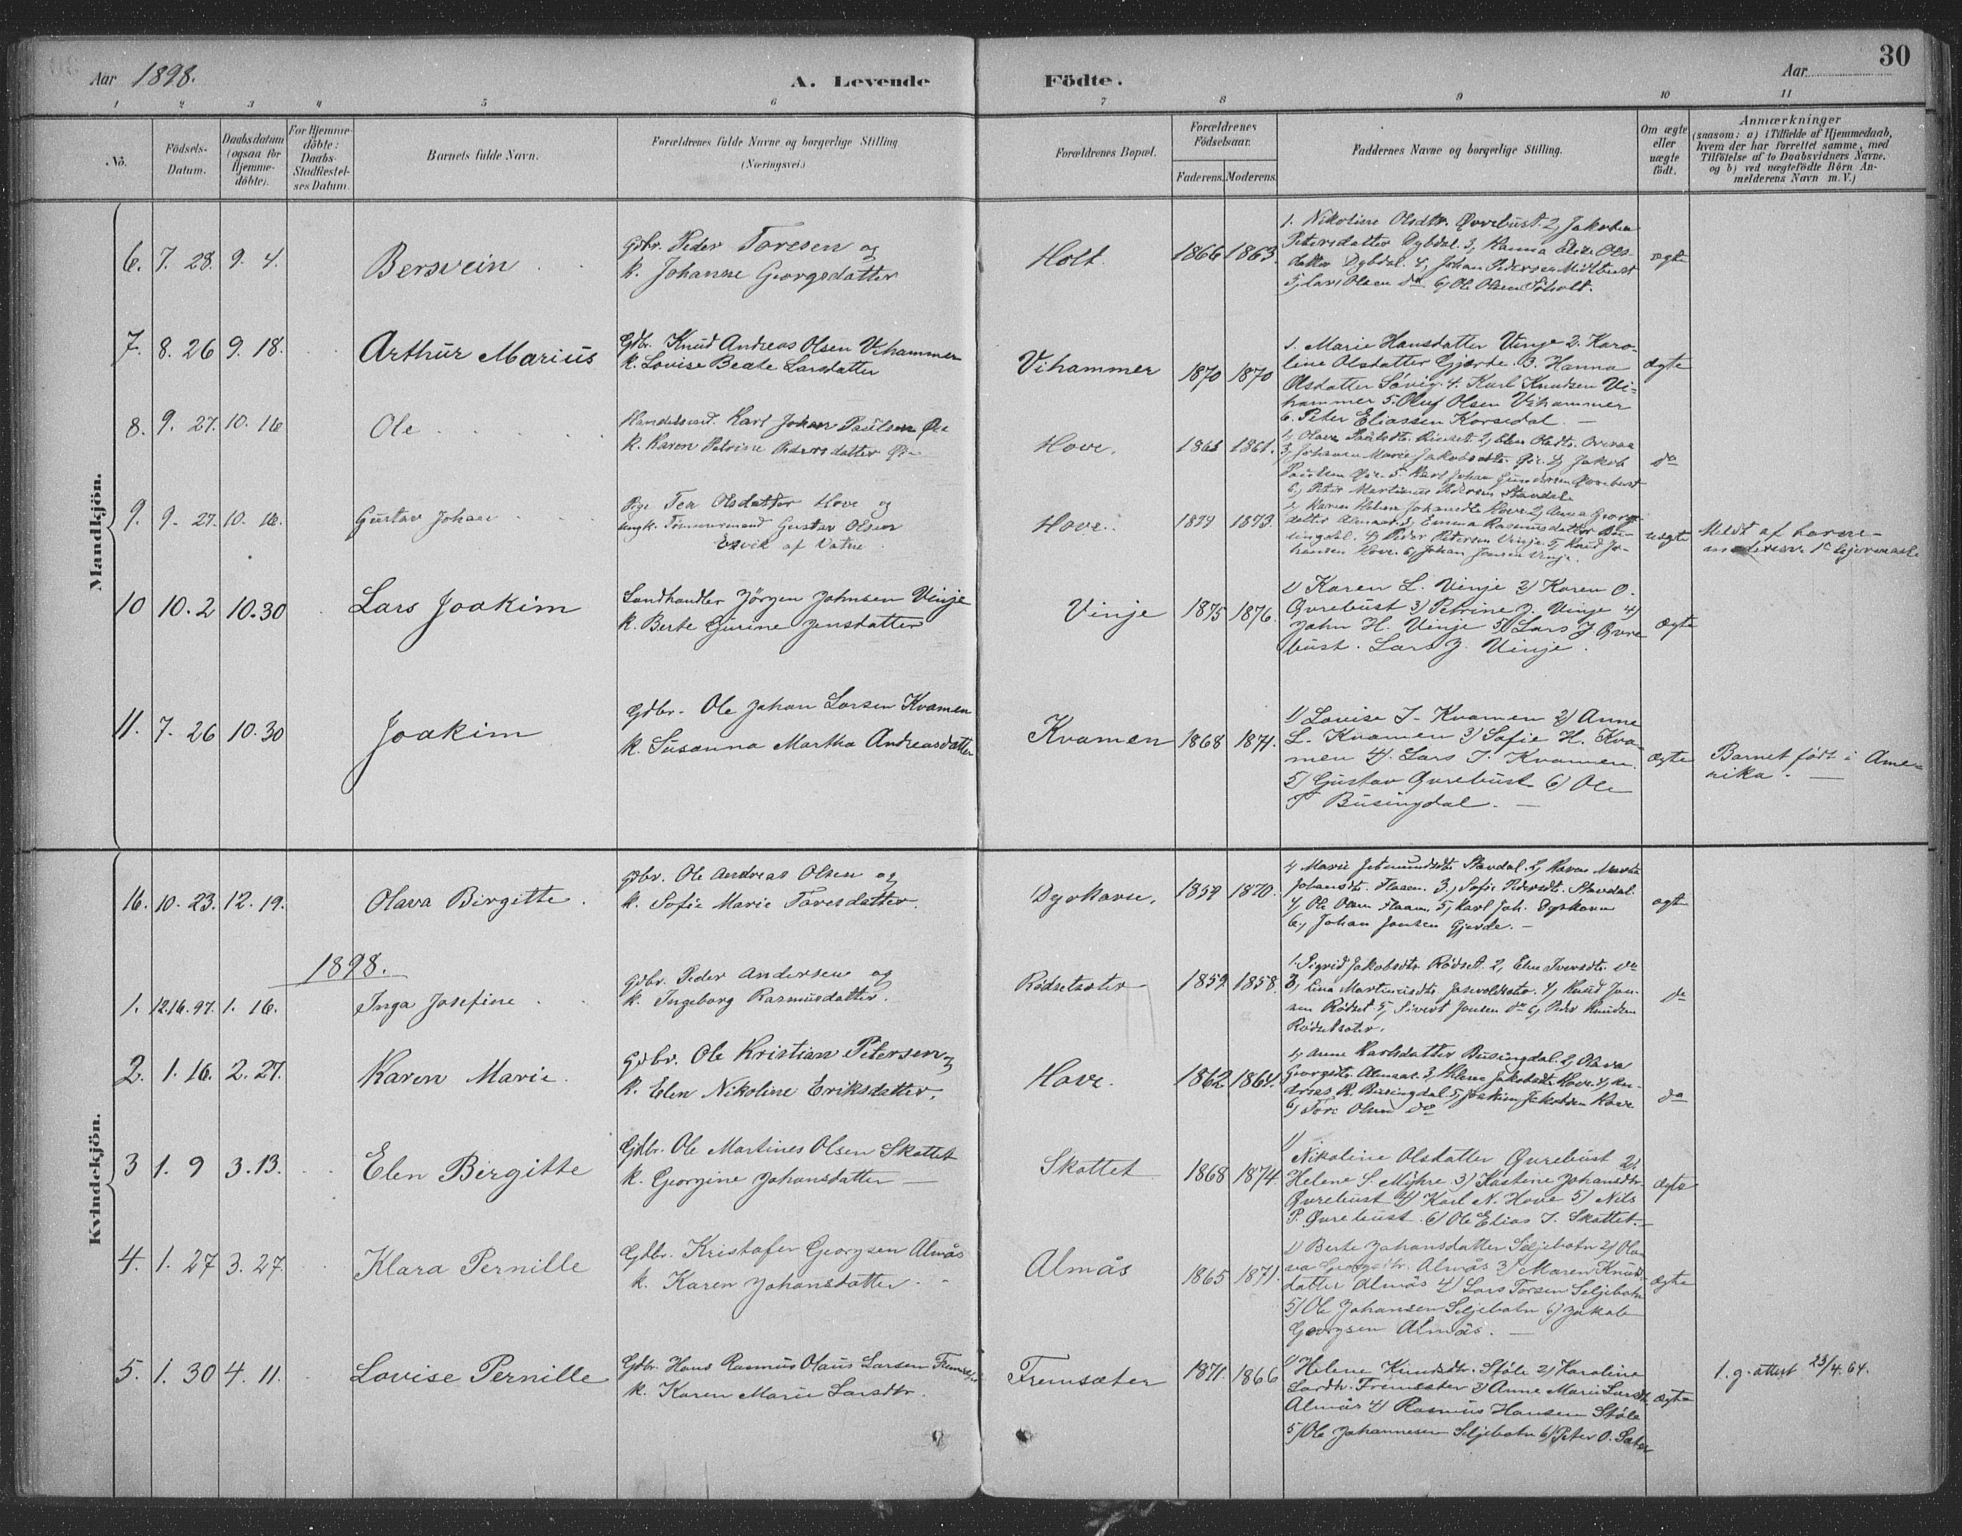 Aar 1898.
A. Levende Födte.
Aar
30
1 2 3 4 5 6 7 8 9 10 11
No.
Födsels-Datum.
Daabsdatum (ogsaa for Hjemmedöbte).
For Hjemmedöbte: Daabs-Stadfæstelses Datum.
Barnets fulde Navn.
Forældrenes fulde Navne og borgerlige Stilling
(Næringsvei.)
Forældrenes Bopæl.
Forældrenes Födselsaar.
Faderens. Moderens.
Faddernes Navne og borgerlige Stilling.
Om ægte eller uægte födt.
Anmærkninger
(saasom: a) i Tilfælde af Hjemmedaab, hvem der har forrettet samme, med Tilföielse af to Daabsvidners Navne. og b) ved uægtefödte Börn Anmelderens Navn m. V.)
Mandkjön.
6. 7. 28. 9. 4. Bersvein
Gdbr. Peder Toresen og
k. Johanne Georgsdatter
Holt 1866 1863.
1. Nikoline Olsdtr. Øvrebust 2, Jakobea
Petersdatter Dybdal. 3, Hanna Elise Ols-
datter Dybdal. 4, Johan Pedersen
5, Lars Olsen do 6, Ole Olsen
ægte
7. 8. 26 9. 18. Arthur Marius
Gdbr. Knud Andreas Olsen Vihammer
k. Lovise Beate Larsdatter
Vihammer 1870 1870
1. Marie Hansdatter Vinje 2. Karo-
line Olsdatter Gjerde. 3. Hanna
Olsdatter Søvig. 4. Karl Knudsen Vi-
hammer 5. Oluf Olsen Vihammer
6. Peter Eliassen Korsedal.
ægte
8. 9. 27. 10. 16 Ole
Karl Johan Paulsen
k. Karen Petrine Pedersdatter
Hove. 1863 1861.
3, Johanne Marie Jakobsdtr. 4, Jakob
Paulsen 5 Karl Johan Gundersen Øvrebust
6, Peter Martinus Pedersen Stavdal
do
9. 9. 27. 10. 16. Gustav Johan
Pige Tea Olsdatter Hove og
ungk. Tømmermand Gustav Olsen
af Vatne
Hove. 1873.
1, Karen Helene Johansdtr Hove 2, Anna Georgs-
datter Almaas 3, Emma Rasmusdatter Bu-
singdal. 4, Peder Petersen Vinje 5, Knud Jo-
hansen Hove. 6, Johan Jonsen Vinje.
uægte
Meldt af barne-
moderen. 1ste leiermaal
10 10. 2 10. 30 Lars Joakim
Landhandler Jørgen Johnsen Vinje
k. Berte Gurine Jensdatter
Vinje 1875 1876.
1) Karen L. Vinje 2) Karen O.
Øvrebust 3) Petrine J. Vinje 4)
John H. Vinje 5) Lars J Øvre
bust. Lars J. Vinje.
ægte
11. 7. 26 10. 30 Joakim
Gdbr. Ole Johan Larsen Kvamen
k. Susanna Martha Andreasdatter
Kvamen 1868 1871.
1) Lovise J. Kvamen 2) Anne
L. Kvamen 3) Sofie H. Kva-
men 4). Lars J. Kvamen.
5) Gustav Øvrebust 6) Ole
P Busingdal.
ægte
Barnet født i Ame-
rika.
Kvindekjön.
16. 10. 23. 12. 19. Olava Birgitte.
Gdbr. Ole Andreas Olsen og
k. Sofie Marie Toresdatter.
Dyrkorn. 1870.
1, Marie Stavdal. 2, Karen Marta
Johansdtr. Flaaen. 3, Sofie Pedersdtr. Stavdal
4, Ole Olsen Flaaen, 5, Karl Joh. Dyrkorn
6, Johan Jonsen Gjerde.
ægte
1898.
1. 12.16.97. 1. 16. Inga Josefine
Gdbr. Peder Andersen og
k. Ingeborg Rasmusdatter.
Rødsetsæter 1859 1858.
1. Sigrid Jakobsdtr Rødset 2, Elen Iversdtr. do
4, Knud Jon-
sen Rødset. 5, Sivert Jonsen do 6, Peder Knudsen
Rødsetsæter.
do
2. 1. 16. 2. 27. Karen Marie.
Gdbr. Ole Kristian Petersen og
k. Elen Nikoline Eriksdatter.
Hove. 1862 1864.
1, Anne Karlsdatter Busingdal. 2, Olava
Georgsdtr. Almaas. 3, Helene Jakobsdtr Hove. 4, An-
dreas R. Busingdal. 5, Joakim Jakobsen Hove
6, Tore Olsen do
do
3 1. 9 3. 13. Elen Birgitte
Gdbr. Ole Martines Olsen Skottet
k. Georgine Johansdatter
Skottet 1868 1874.
1)
Nikoline Olsdatter Øvrebust 2).
Helene S. Myhre 3) Kastene Johansdtr
Øvrebust 4) Karl N. Hove 5) Nils
P. Øvrebust. 6) Ole Elias J. Skottet.
ægte
4. 1. 27 3. 27. Klara Pernille
Gdbr. Kristofer Georgsen Almås
k. Karen Johansdatter.
Almås 1865 1871.
1) Berte Johansdatter Seljebotn 2) Ola-
va Georgsdtr. Almås 3) Maren Knuds-
datter Almås 4) Lars Torsen Seljebotn
5) Ole Johansen Seljebotn 6) Jakob
Georgsen Almås.
ægte
5. 1. 30 4. 11. Lovise Pernille
Gdbr. Hans Rasmus Olaus Larsen Fremsæter
k. Karen Marie Larsdtr.
Fremsæter 1871. 1866
1) Helene Knudsdtr. Støle 2) Karoline
Larsdtr. Fremsæter 3) Anne Marie Larsdtr
Almås 4) Rasmus Hansen Støle
5) Ole Johannesen Seljebotn 6) Peter O. Sæter
ægte
1. g. attest 23/4. 64.